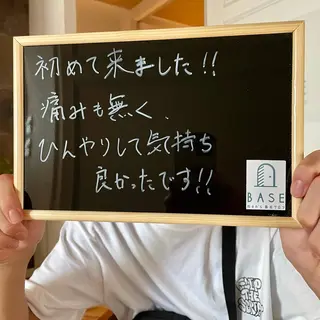 初めて来ました!!
痛みも無く、
ひんやりして気持ち
良かったです!!
BASE